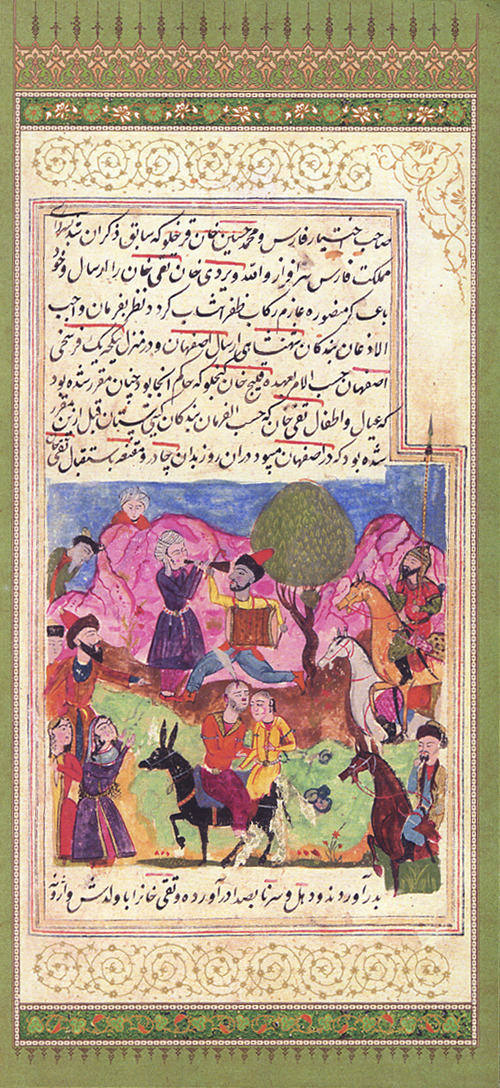 صاحب اختیار فارس و محمد حسین خان قرخلو که سابق ذکر آن شد
مملکت فارس سرافراز و الله ویردی خان تقی خان را ارسال و خود
با عسکر منصوره عازم رکاب ظفر گردد نظر بفرمان واجب
الاذعان بندگان شهنشاهی ارسال اصفهان و در منزل فرسخی
اصفهان حسب الامر بعهده قلیج خان که حاکم آنجا بود چنان مقرر شده بود
که عیال و اطفال تقی خان که حسب الفرمان بندگان گیتی ستان قبل ازین مقرر
شده بود که در اصفهان میبود در ان روز بدان چادر و مقنعه باستقبال تقی خان
بدر آوردند و دهل و سرنا بصدا در آورده و تقی خانرا با ولدش واژونه